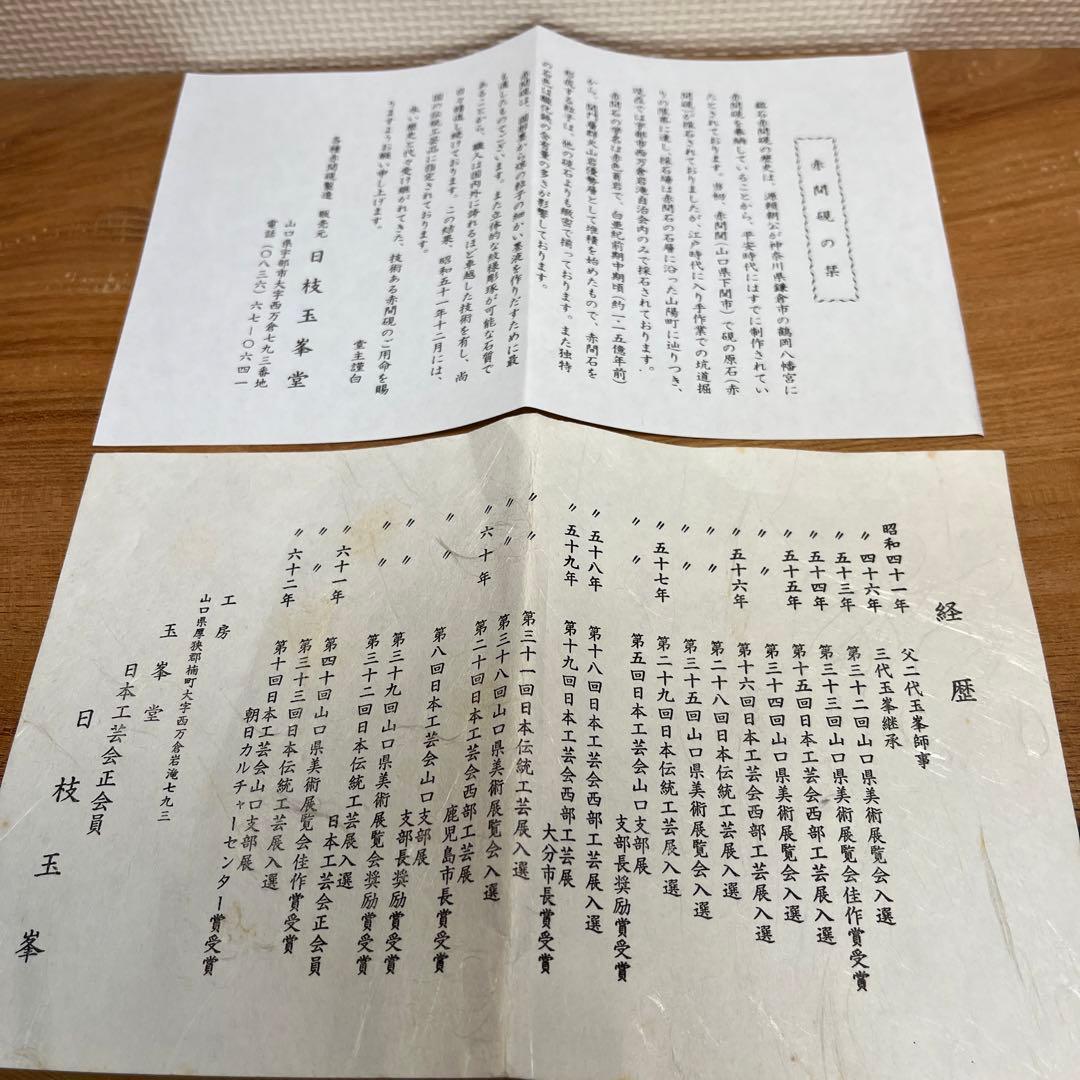 赤間硯の栞
銘石赤間硯の歴史は、源頼朝公が神奈川県鎌倉市の鶴岡八幡宮に
赤間硯を奉納していることから、平安時代にはすでに制作されてい
たとされております。当初、赤間関(山口県下関市)で硯の原石(赤
間硯)が採石されておりましたが、江戸時代に入り手作業での坑道掘
りの限界に達し、採石場は赤間石の石層に沿った山陽町に辿りつき、
現在では宇部市西万倉岩滝自治会内のみで採石されております。
赤間石の学名は赤色頁岩で、白亜紀前期中期頃(約一・一五億年前)
から、関門層群火山岩優勢層として堆積を始めたもので、赤間石を
形成する粒子は、他の硯石よりも緻密で揃っております。また独特
の石色は酸化鉄の含有量の多さが影響しております。
赤間硯は、固形墨から墨の粒子の細かい墨液を作りだすために最
も適したものでございます。また立体的な紋様彫琢が可能な石質で
あることから、職人は国内外に誇れるほど卓越した技術を有し、尚
日々精進し続けております。この結果、昭和五十一年十二月には、
国の伝統工芸品に指定されております。
永い歴史と代々受け継がれてきた、技術ある赤間硯のご用命を賜
りますようお願い申し上げます。
堂主謹白
名種赤間硯製造 販売元 日枝玉峯堂
山口県宇部市大字西万倉七九三番地
電話(〇八三六)六七ー〇六四一
経歴
昭和四十一年 父二代玉峯師事
〃四十六年 三代玉峯継承
〃五十三年 第三十二回山口県美術展覧会入選
〃五十四年 第三十三回山口県美術展覧会佳作賞受賞
〃五十五年 第十五回日本工芸会西部工芸展入選
〃 〃 第三十四回山口県美術展覧会入選
〃五十六年 第十六回日本工芸会西部工芸展入選
〃 〃 第二十八回日本伝統工芸展入選
〃 〃 第三十五回山口県美術展覧会入選
〃五十七年 第二十九回日本伝統工芸展入選
〃 〃 第五回日本工芸会山口支部展
支部長奨励賞受賞
〃五十八年 第十八回日本工芸会西部工芸展入選
〃五十九年 第十九回日本工芸会西部工芸展
大分市長賞受賞
〃 〃 第三十一回日本伝統工芸展入選
〃 〃 第三十八回山口県美術展覧会入選
〃六十年 第二十回日本工芸会西部工芸展
鹿児島市長賞受賞
〃 〃 第八回日本工芸会山口支部展
支部長奨励賞受賞
〃 〃 第三十九回山口県美術展覧会奨励賞受賞
〃 〃 第三十二回日本伝統工芸展入選
〃六十一年 日本工芸会正会員
第四十回山口県美術展覧会佳作賞受賞
〃 〃 第三十三回日本伝統工芸展入選
〃六十二年 第十回日本工芸会山口支部展
朝日カルチャーセンター賞受賞
工房
山口県厚狭郡楠町大字西万倉岩滝七九三
玉峯堂
日本工芸会正会員
日枝玉峯